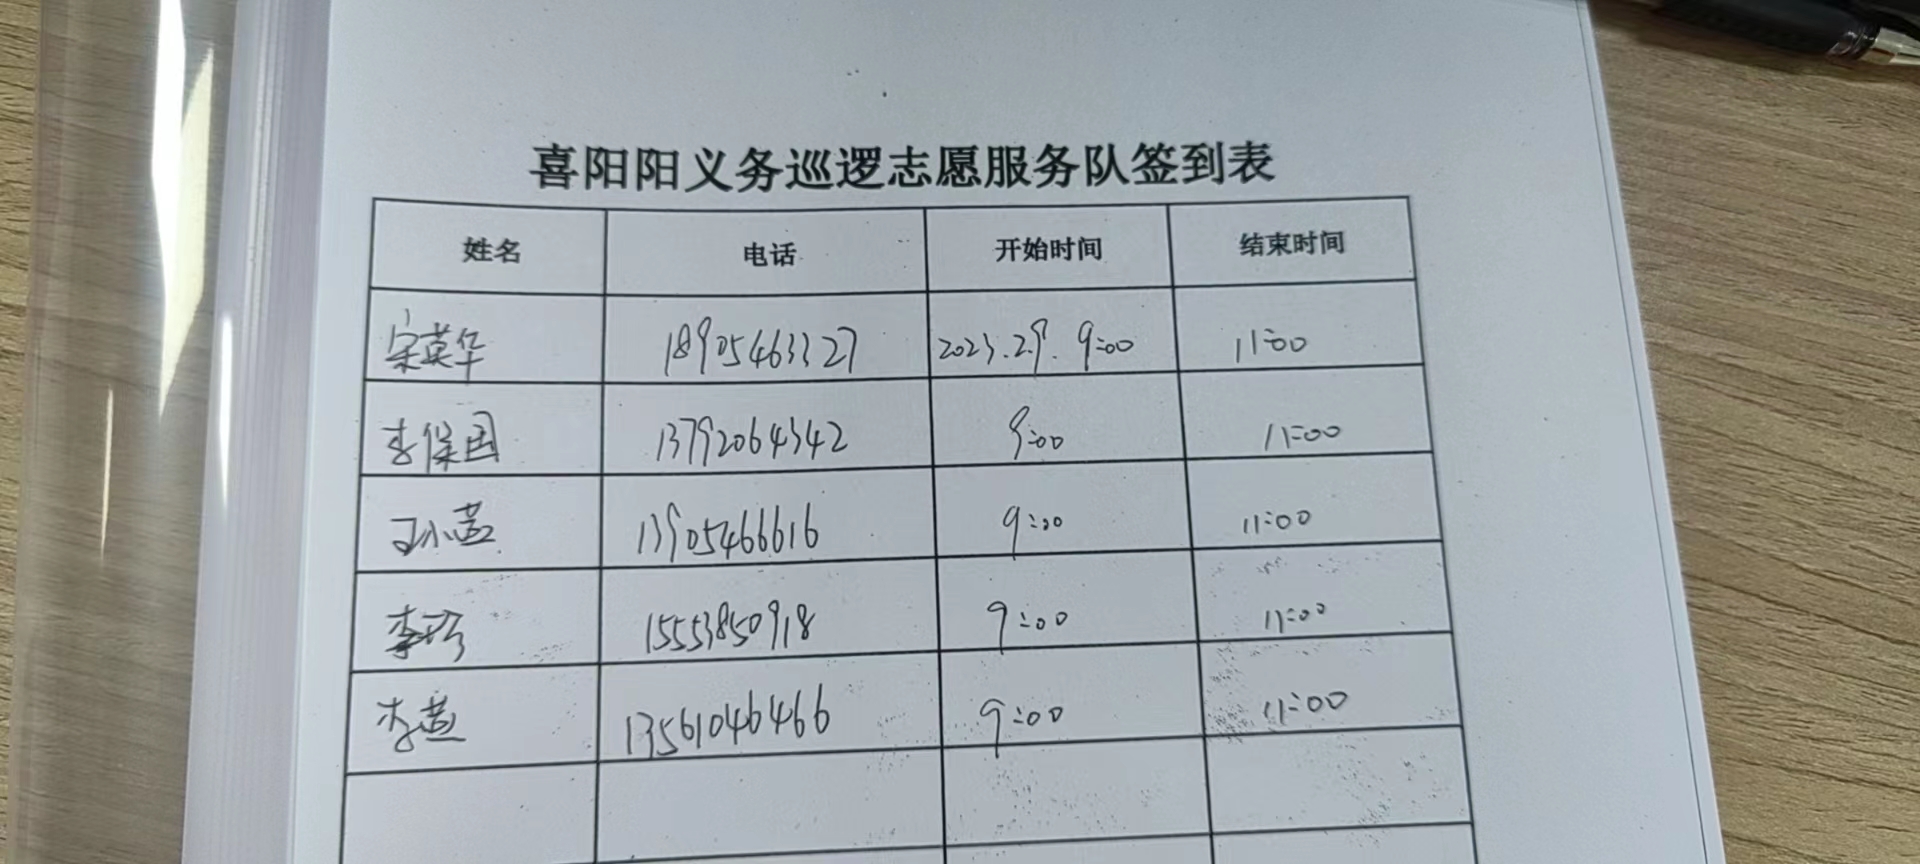 喜阳阳义务巡逻志愿服务队签到表
姓名 电话 开始时间 结束时间
宋英华 18905463327 2023.2.9. 9:00 11:00
李保国 13792064342 9:00 11:00
孙燕 13905466616 9:00 11:00
李珍 15553850918 9:00 11:00
李燕 13561046466 9:00 11:00